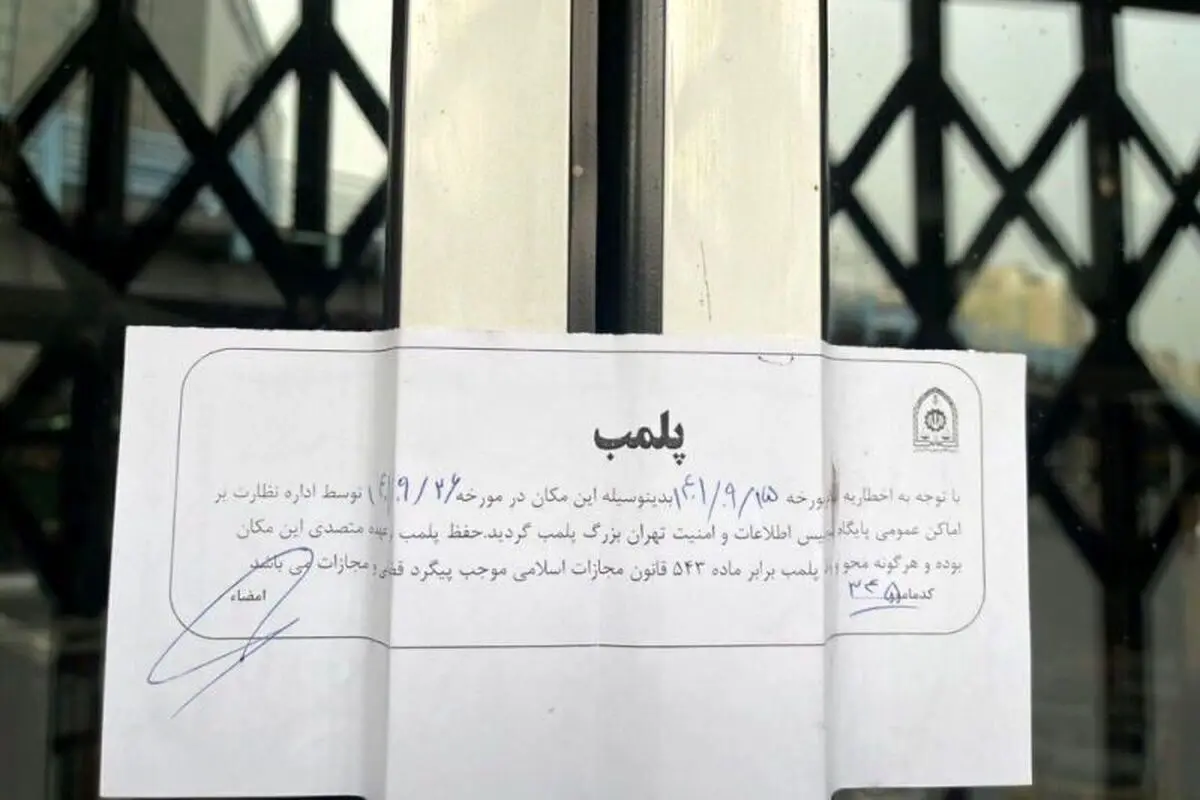 پلمب
با توجه به اخطاریه مورخه ۱۴۰۱/۹/۱۵ بدینوسیله این مکان در مورخه ۱۴۰۱/۹/۲۶ توسط اداره نظارت بر
اماکن عمومی پایگاه پلیس اطلاعات و امنیت تهران بزرگ پلمب گردید.حفظ پلمب بعهده متصدی این مکان
بوده و هرگونه محو و پلمب برابر ماده ۵۴۳ قانون مجازات اسلامی موجب پیگرد قضایی و مجازات می باشد
کدمامور ۳۴۵
امضاء